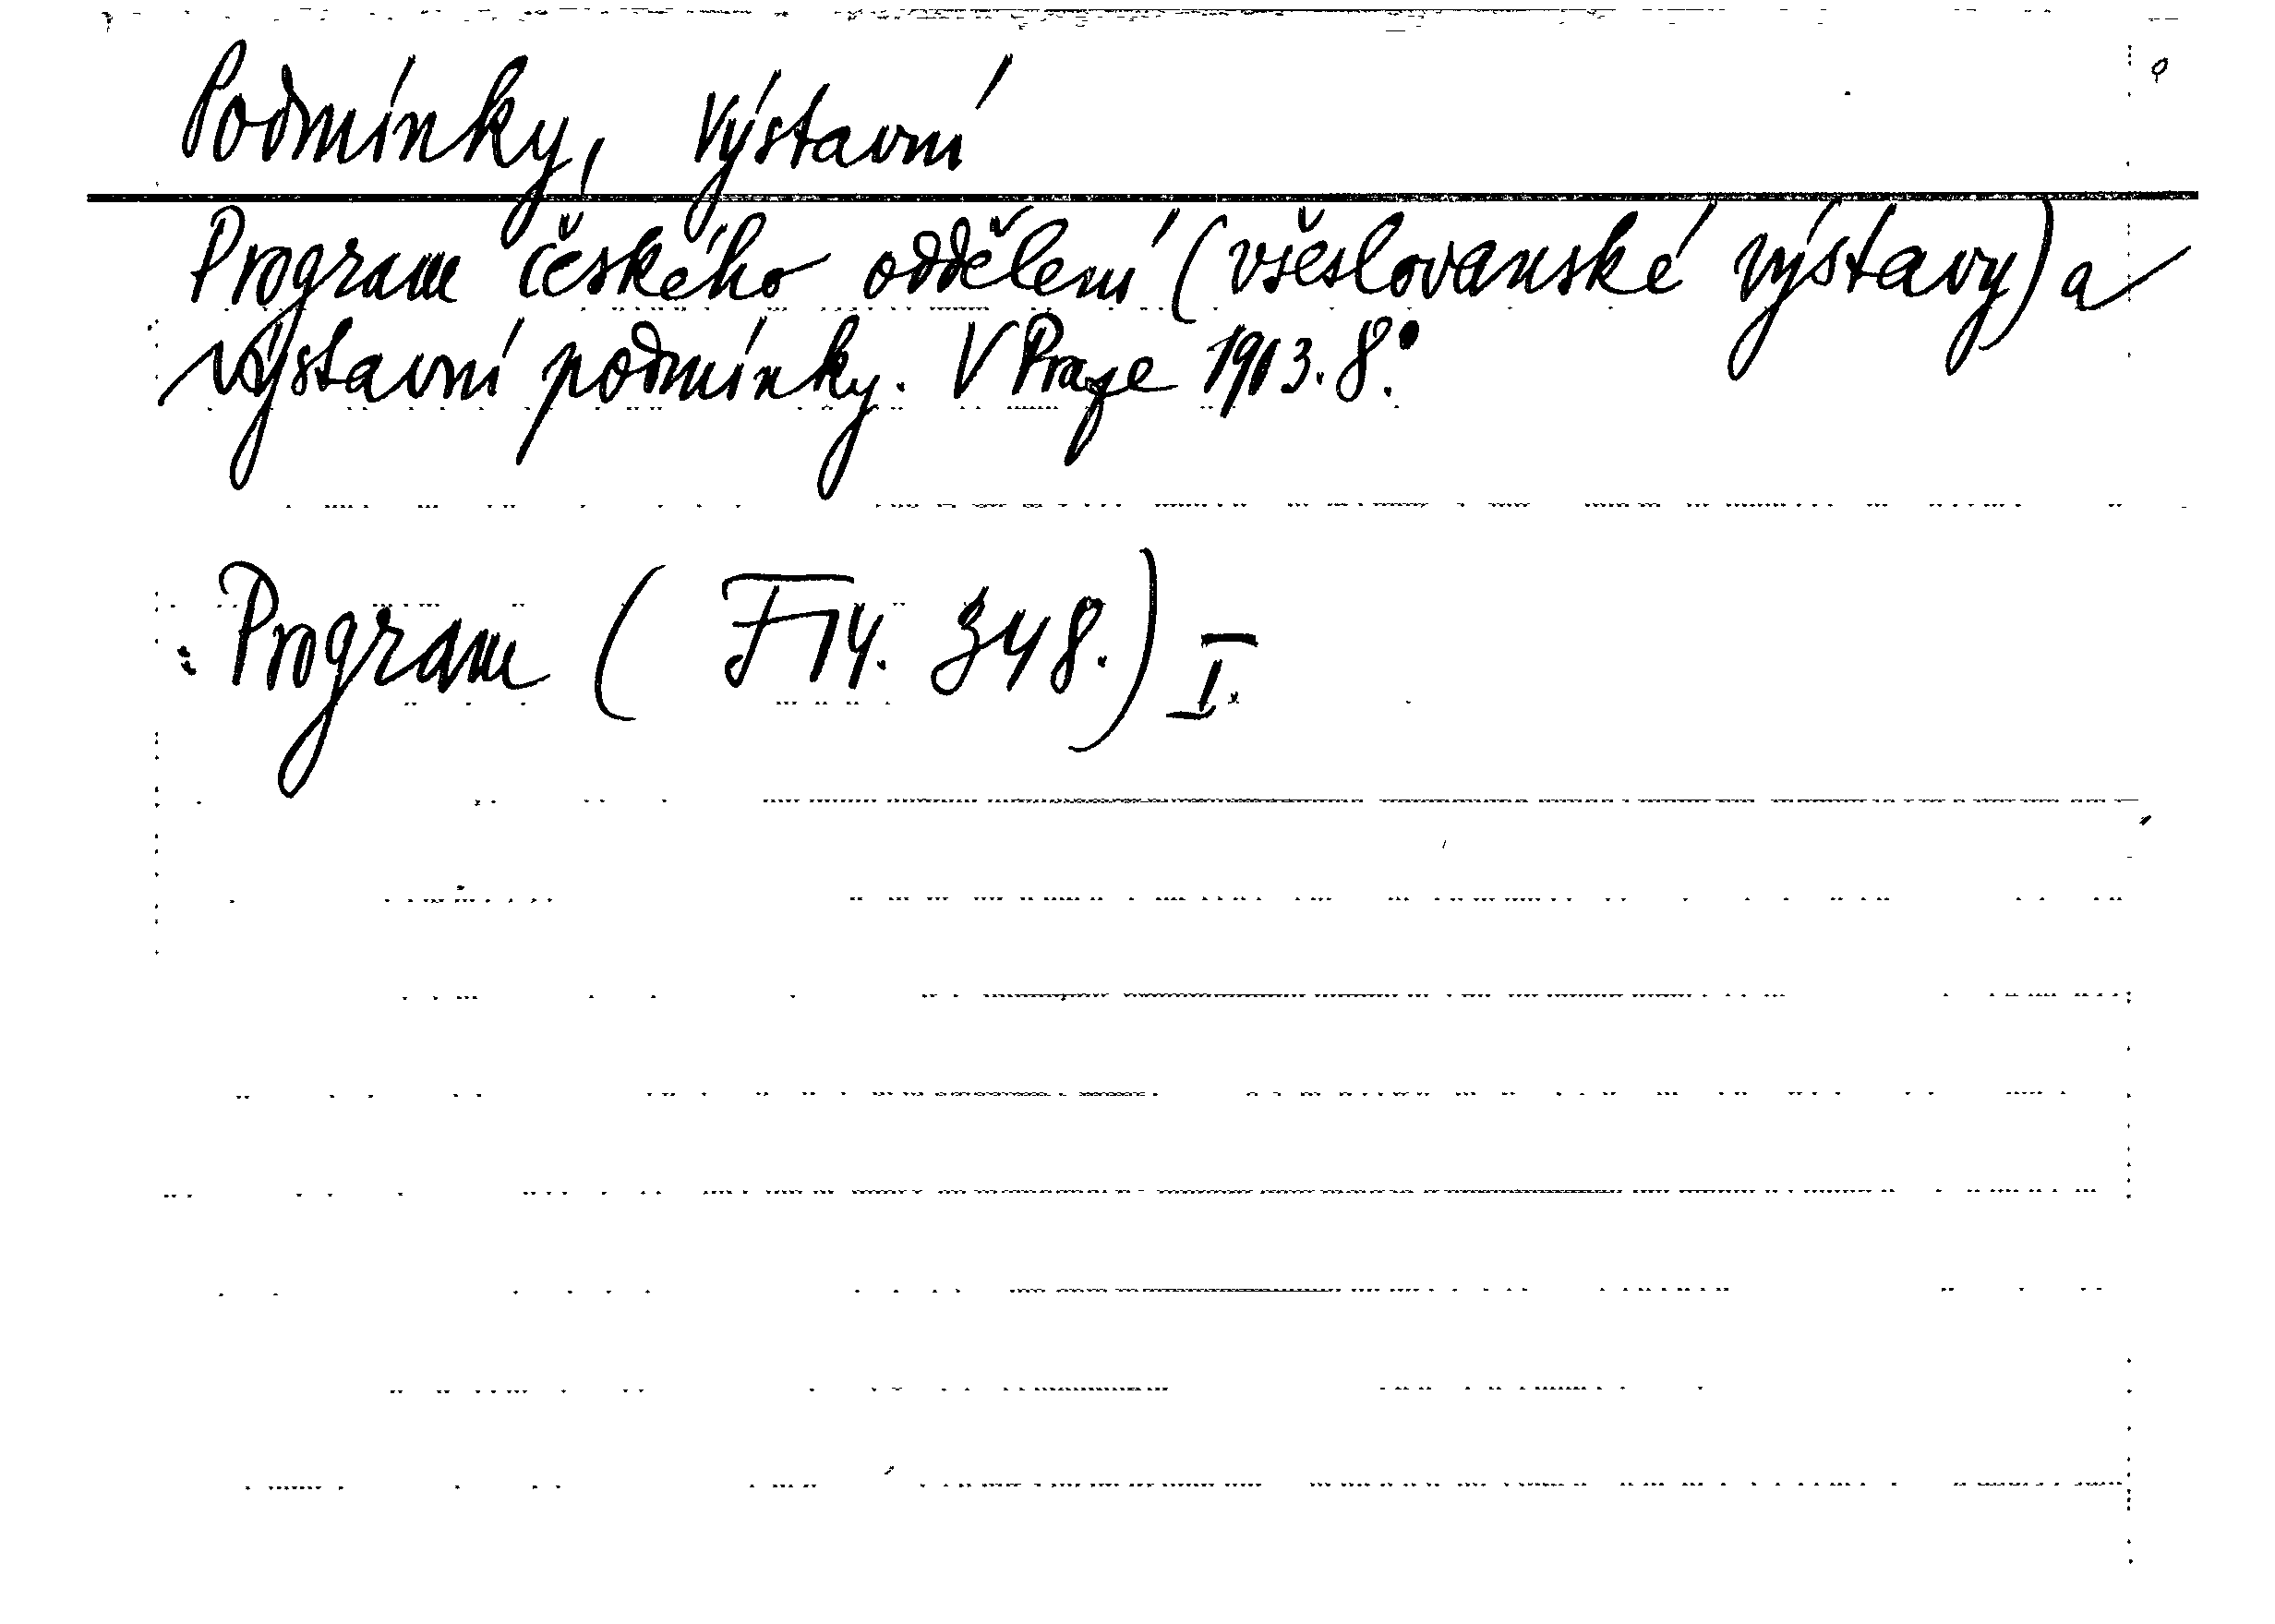 Podmínky, výstavní
Program českého oddělení (všeslovanské výstavy) a
výstavní podmínky. V Praze 1903. 8°.
: Program (F 14. 348.) I.